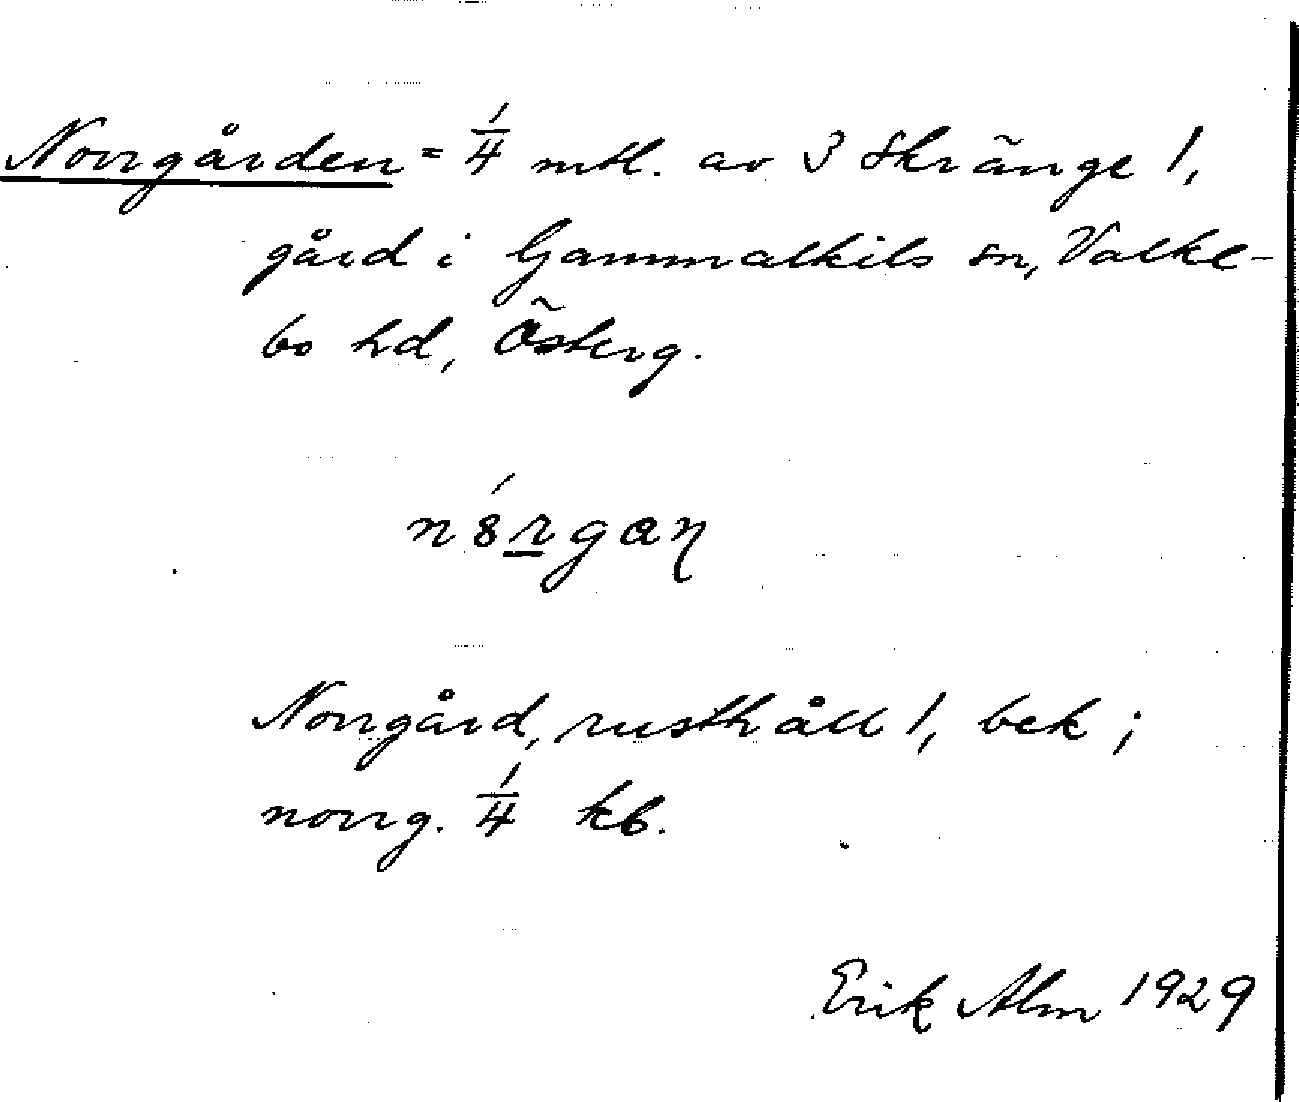 Norrgården = 1/4 mtl. av 3 Skränge 1,
gård i Gammalkils sn, Valke-
bo hd, Österg.
n8́r̲gaŋ
Norrgård, rusthåll 1, bek;
norrg. 1/4 kb.
Erik Alm 1929